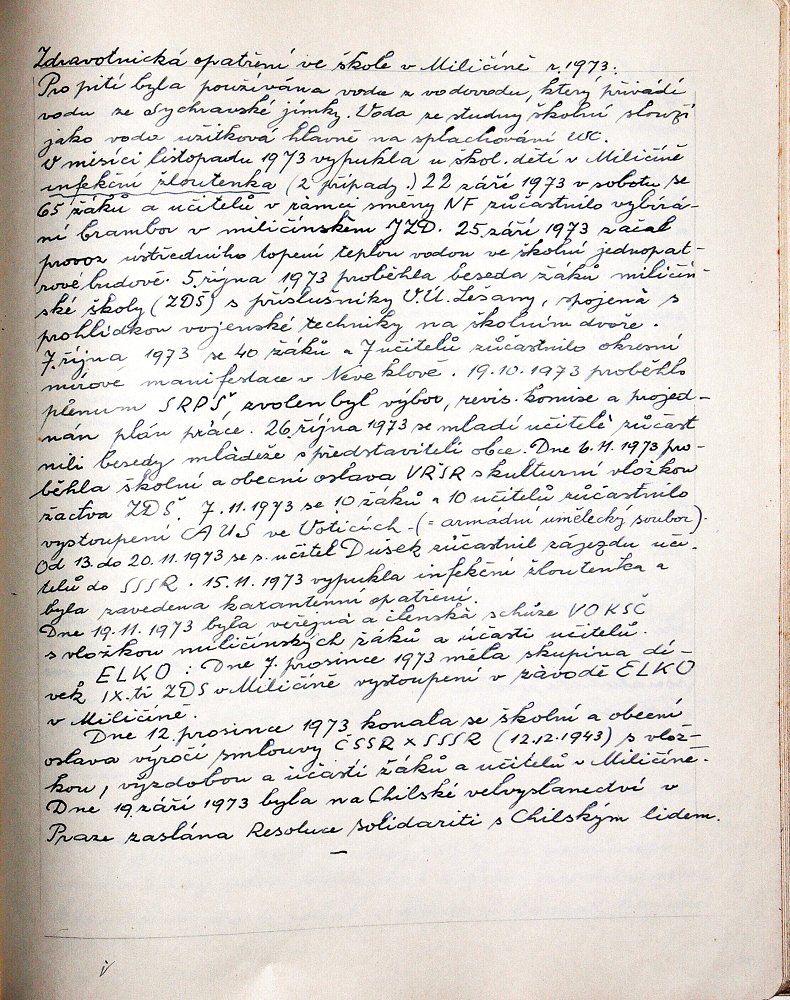 Zdravotnická opatření ve škole v Miličíně r. 1973.
Pro pití byla používána voda z vodovodu, který přivádí
vodu ze Sychravské jímky. Voda ze studny školní slouží
jako voda užitková hlavně na splachování WC.
V měsíci listopadu 1973 vypukla u škol. dětí v Miličíně
infekční žloutenka (2 případy.) 22 září 1973 v sobotu se
65 žáků a učitelů v rámci směny NF zúčastnilo vybírá-
ní brambor v miličínském JZD. 25. září 1973 začal
provoz ústředního topení teplou vodou ve školní jednopat-
rové budově. 5. října 1973 proběhla beseda žáků miličín-
ské školy (ZDŠ) s příslušníky V.Ú. Lešany, spojená s
prohlídkou vojenské techniky na školním dvoře.
7. října 1973 se 40 žáků a 7 učitelů zúčastnilo okresní
mírové manifestace v Neveklově. 19.10.1973 proběhlo
plenum SRPŠ, zvolen byl výbor, revis. komise a projed-
nán plán práce. 26. října 1973 se mladí učitelé zúčast
nili besedy mládeže s představiteli obce. Dne 6.11.1973 pro-
běhla školní a obecní oslava VŘSR s kulturní vložkou
žactva ZDŠ. 7.11.1973 se 10 žáků a 10 učitelů zúčastnilo
vystoupení AUS ve Voticích - (= armádní umělecký soubor).
Od 13. do 20.11.1973 se s. učitel Dušek zúčastnil zájezdu uči-
telů do SSSR. 15.11.1973 vypukla infekční žloutenka a
byla zavedena karanténní opatření.
Dne 19.11.1973 byla veřejná a členská schůze VOKSČ
s vložkou miličínských žáků a účastí učitelů.
ELKO: Dne 7. prosince 1973 měla skupina dí-
vek IX. tř ZDŠ v Miličíně vystoupení v závodě ELKO
v Miličíně.
Dne 12. prosince 1973 konala se školní a obecní
oslava výročí smlouvy ČSSR x SSSR (12.12.1943) s vlož-
kou, výzdobou a účastí žáků a učitelů v Miličíně.
Dne 19. září 1973 byla na Chilské velvyslanectví v
Praze zaslána Resoluce solidariti s Chilským lidem.